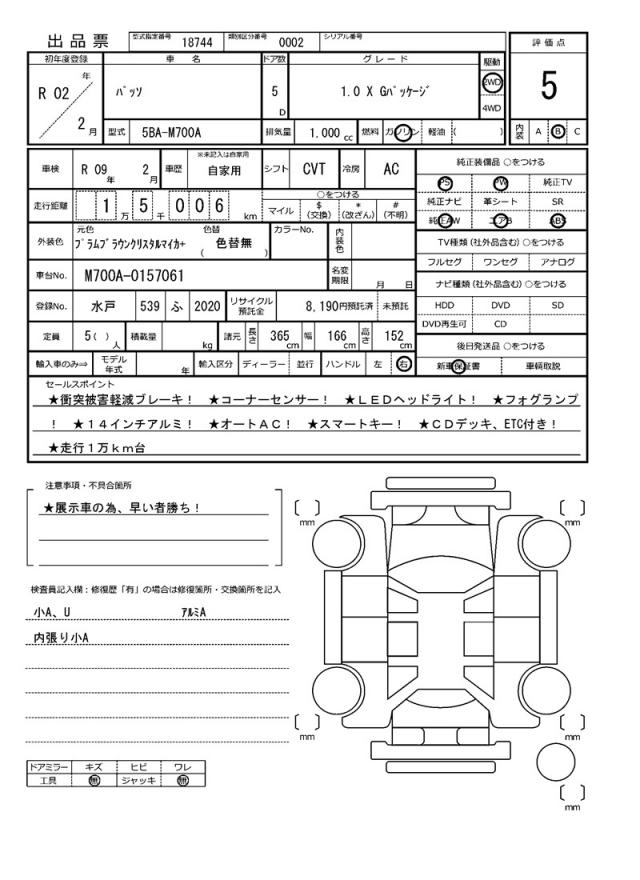 出品票 型式指定番号 18744 類別区分番号 0002 シリアル番号
評価点
初年度登録 車名 ドア数 グレード 駆動
R 02 年 2 月
パッソ
5 D
1.0 X Gパッケージ
2WD
4WD
5
型式 5BA-M700A 排気量 1.000 cc 燃料 ガソリン 軽油 ( )
内装 A B C
車検 R 09 年 2 月 車歴 ※未記入は自家用 自家用 シフト CVT 冷房 AC
純正装備品 ○をつける
PS PW 純正TV
純正ナビ 革シート SR
純正AW エアB ABS
走行距離 1 万 5 千 0 0 6 km
○をつける
マイル $ (交換) * (改ざん) # (不明)
外装色 元色 プラムブラウンクリスタルマイカ+ 色替 ( 色替無 ) カラーNo. 内装色
TV種類 (社外品含む) ○をつける
フルセグ ワンセグ アナログ
車台No. M700A-0157061 名変期限 月 日
ナビ種類 (社外品含む) ○をつける
HDD DVD SD
DVD再生可 CD
登録No. 水戸 539 ふ 2020 リサイクル預託金 8,190円預託済 未預託
定員 5( ) 人 積載量 kg 諸元 長さ 365 cm 幅 166 cm 高さ 152 cm
後日発送品 ○をつける
新車保証書 車輌取説
輸入車のみ⇒ モデル年式 年 輸入区分 ディーラー 並行 ハンドル 左 右
セールスポイント
★衝突被害軽減ブレーキ! ★コーナーセンサー! ★LEDヘッドライト! ★フォグランプ
! ★14インチアルミ! ★オートAC! ★スマートキー! ★CDデッキ、ETC付き!
★走行1万km台
注意事項・不具合箇所
★展示車の為、早い者勝ち!
検査員記入欄:修復歴「有」の場合は修復箇所・交換箇所を記入
小A、U アルミA
内張り小A
ドアミラー キズ ヒビ ワレ
工具 無 ジャッキ 無
mm
mm
mm
mm
mm